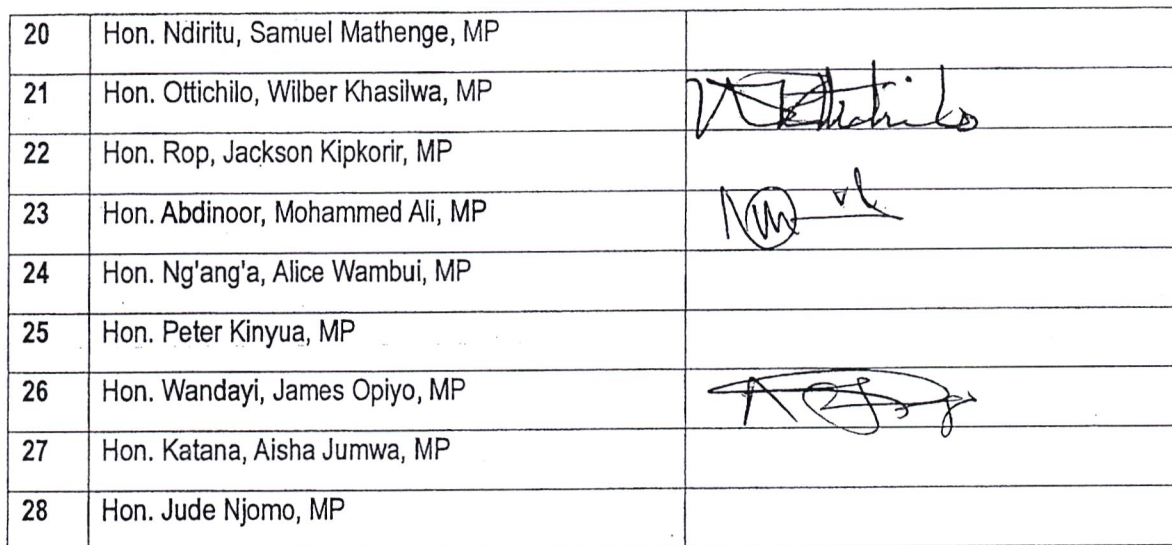 20 Hon. Ndiritu, Samuel Mathenge, MP
21 Hon. Ottichilo, Wilber Khasilwa, MP
22 Hon. Rop, Jackson Kipkorir, MP
23 Hon. Abdinoor, Mohammed Ali, MP
24 Hon. Ng'ang'a, Alice Wambui, MP
25 Hon. Peter Kinyua, MP
26 Hon. Wandayi, James Opiyo, MP
27 Hon. Katana, Aisha Jumwa, MP
28 Hon. Jude Njomo, MP